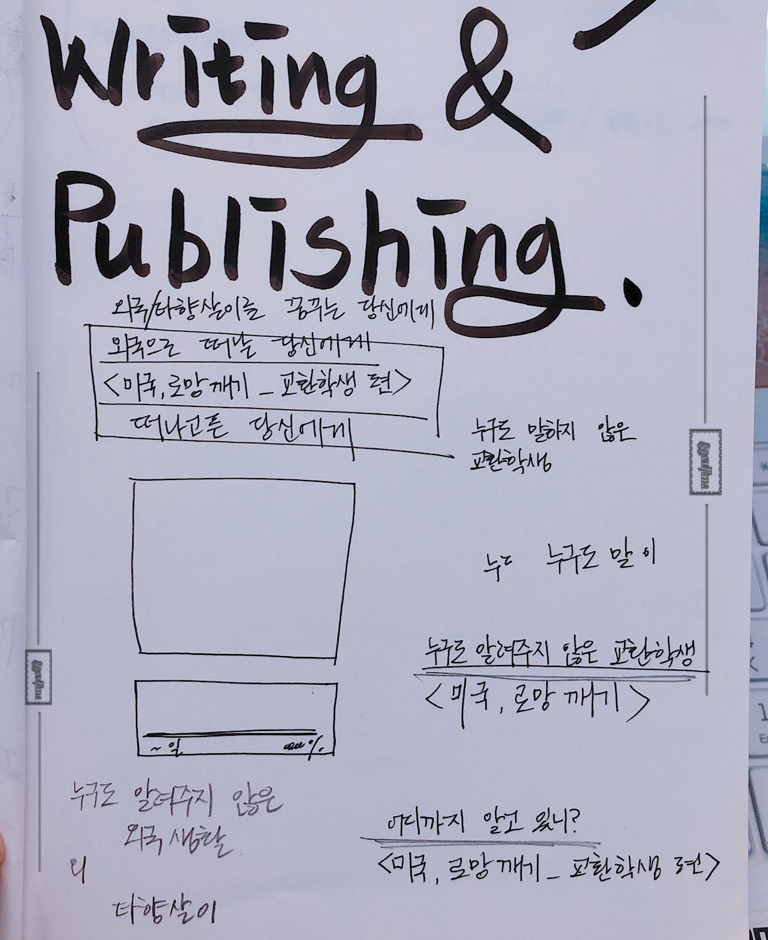 Writing &
Publishing.
외국/타향살이를 꿈꾸는 당신에게
외국으로 떠날 당신에게
<미국, 로망 깨기 _ 교환학생 편>
떠나고픈 당신에게
누구도 말하지 않은
교환학생
누ㄷ 누구도 말 이
누구도 알려주지 않은 교환학생
<미국, 로망 깨기>
~ 일 %
누구도 알려주지 않은
외국 생활
외
타향살이
어디까지 알고 있니?
<미국, 로망 깨기 _ 교환학생 편>